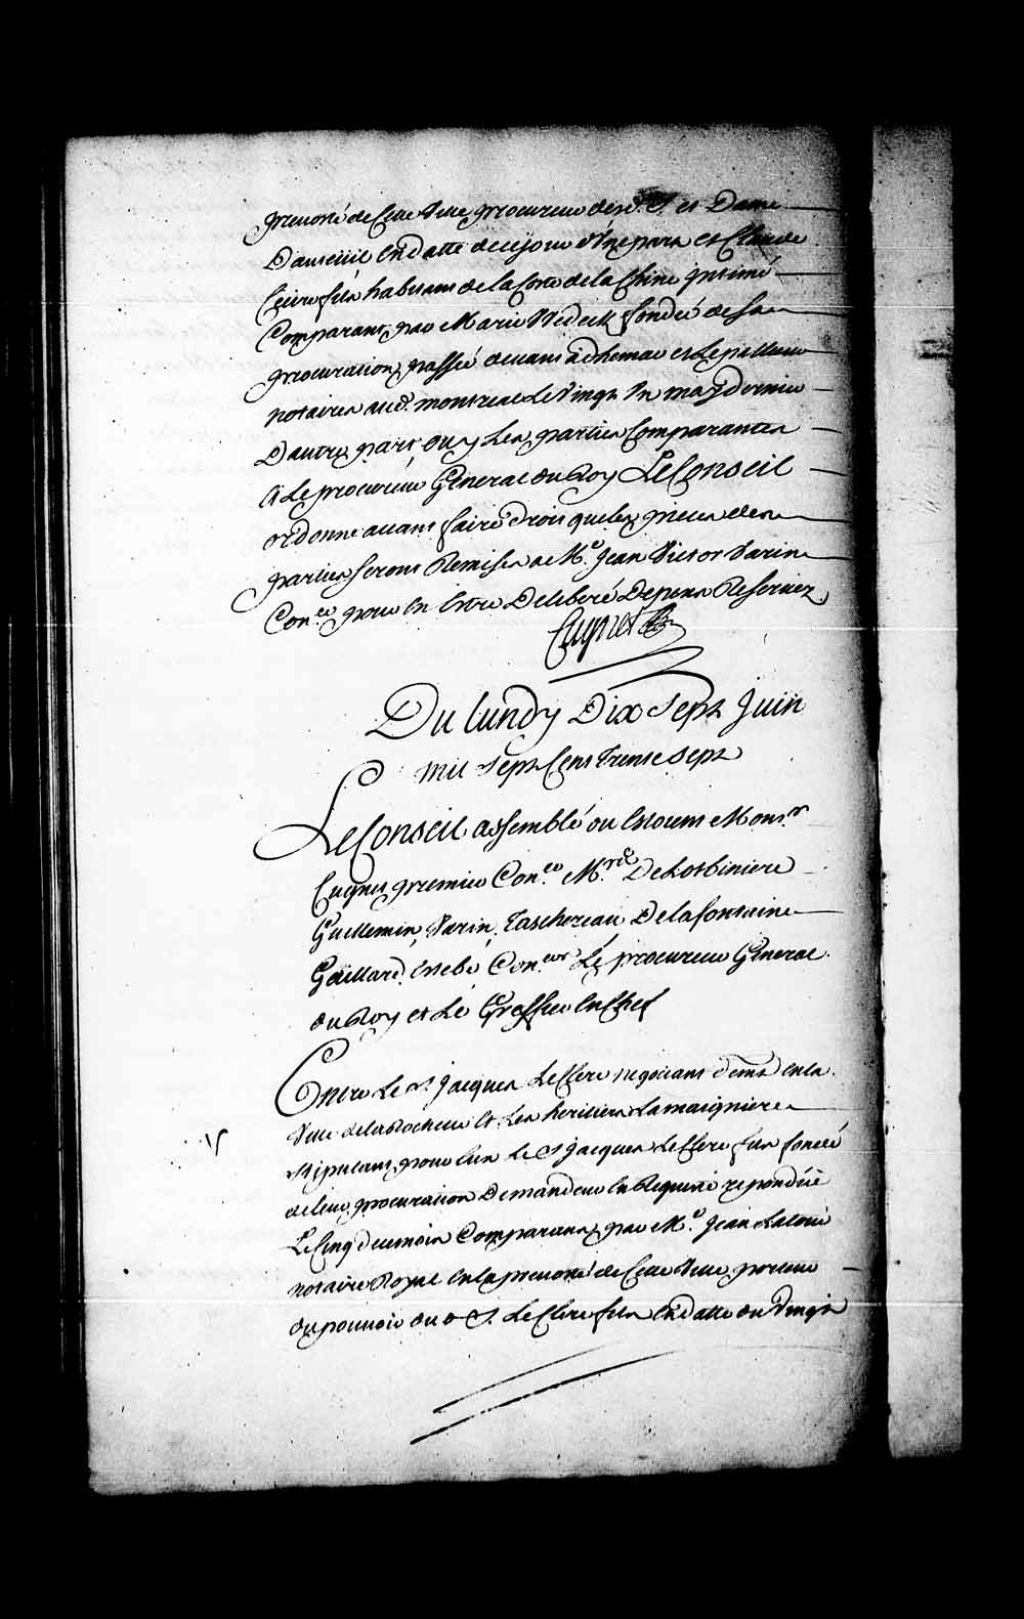 prevosté de Cette Ville procureur desd. S. et Dame
Dauteüil En datte de ce jour d'Une part et Claude
fils habitant de la Coste de la Chine intimé
Comparant par Marie fondée de Sa
procuration passée devant adhemar et Lepailleur
notaires aud. montreal Le Vingt Un may dernier
D'autre part ouy Les parties Comparantes
& Le procureur General du Roy Le Conseil
ordonne avant faire droit que les pieces des
parties seront Remises a Me. Jean Victor Varin
Coner. pour En Estre Deliberé Depens Reservez
Cugnet
Du Lundy Dix Sept Juin
mil Sept Cent Trente Sept
Le Conseil assemblé ou Estoient Monsr.
Cugnet premier Coner. Mrs. De Lotbiniere
Guillemin, Varin, Taschereau, De Lafontaine
Gaillard, Estebe Coners. Le procureur General
du Roy et Le Greffier En Chef
Entre Le S. Jacques LeClerc negociant demt. en la
Ville de La Rochelle Et Les heritiers Lamaigniere
Stipulant pour Eux Le S. Jacques LeClerc fils fondé
de leur procuration Demandeur En Requeste repondüe
Le Cinq de ce mois Comparant par Me. Jean Latour
notaire Royal En la prevosté de Cette Ville porteur
du pouvoir du d. S. LeClerc fils En datte du Vingt